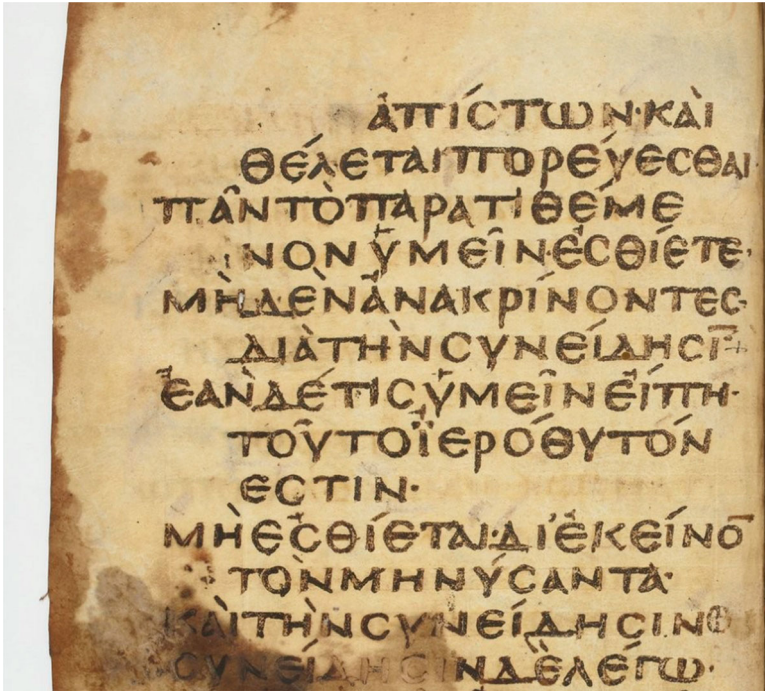 ἀπίστων· καὶ
θέλεται πορεύεσθαι
πᾶν τὸ παρατιθέμε
νον ὑμεῖν ἐσθίετε·
μηδὲν ἀνακρίνοντες·
διὰ τὴν συνείδησῑ
ἐὰν δέ τις ὑμεῖν εἴπη·
τοῦτο ἱερόθυτόν
εστιν·
μὴ ἐσθίεται· δι' ἐκεῖνο̄
τὸν μηνύσαντα·
καὶ τὴν συνείδησιν
συνείδησιν δὲ λέγω·